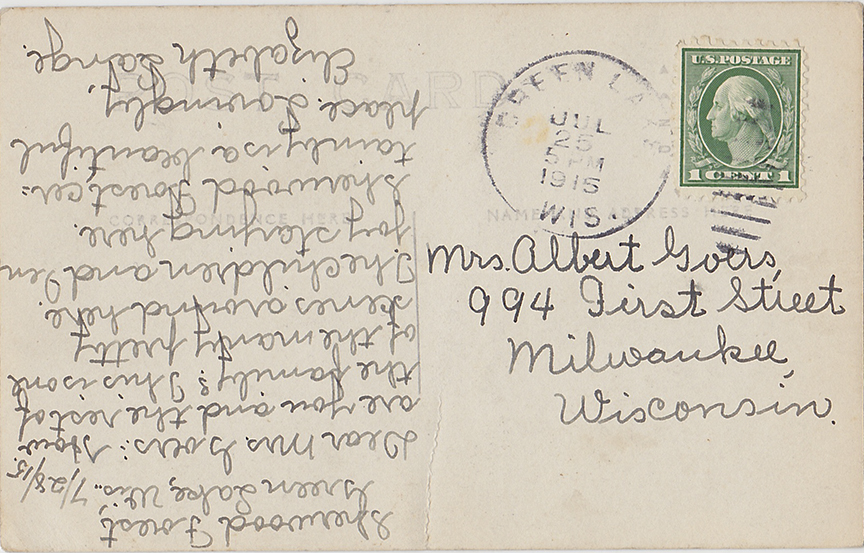 POST CARD
CORRESPONDENCE HERE
NAME AND ADDRESS HERE
GREEN LAKE
JUL
25
5 PM
1915
WIS
U.S. POSTAGE
1 CENT 1
Mrs. Albert Goers,
994 First Street
Milwaukee,
Wisconsin.
Sherwood Forest,
Green Lake, Wis., 7/28/15.
Dear Mrs. Goers: How
are you and the rest of
the family? This is one
of the many pretty
scenes around here.
The children and I en
joy staying here.
Sherwood Forest cer=
tainly is a beautiful
place. Lovingly,
Elizabeth Lange.